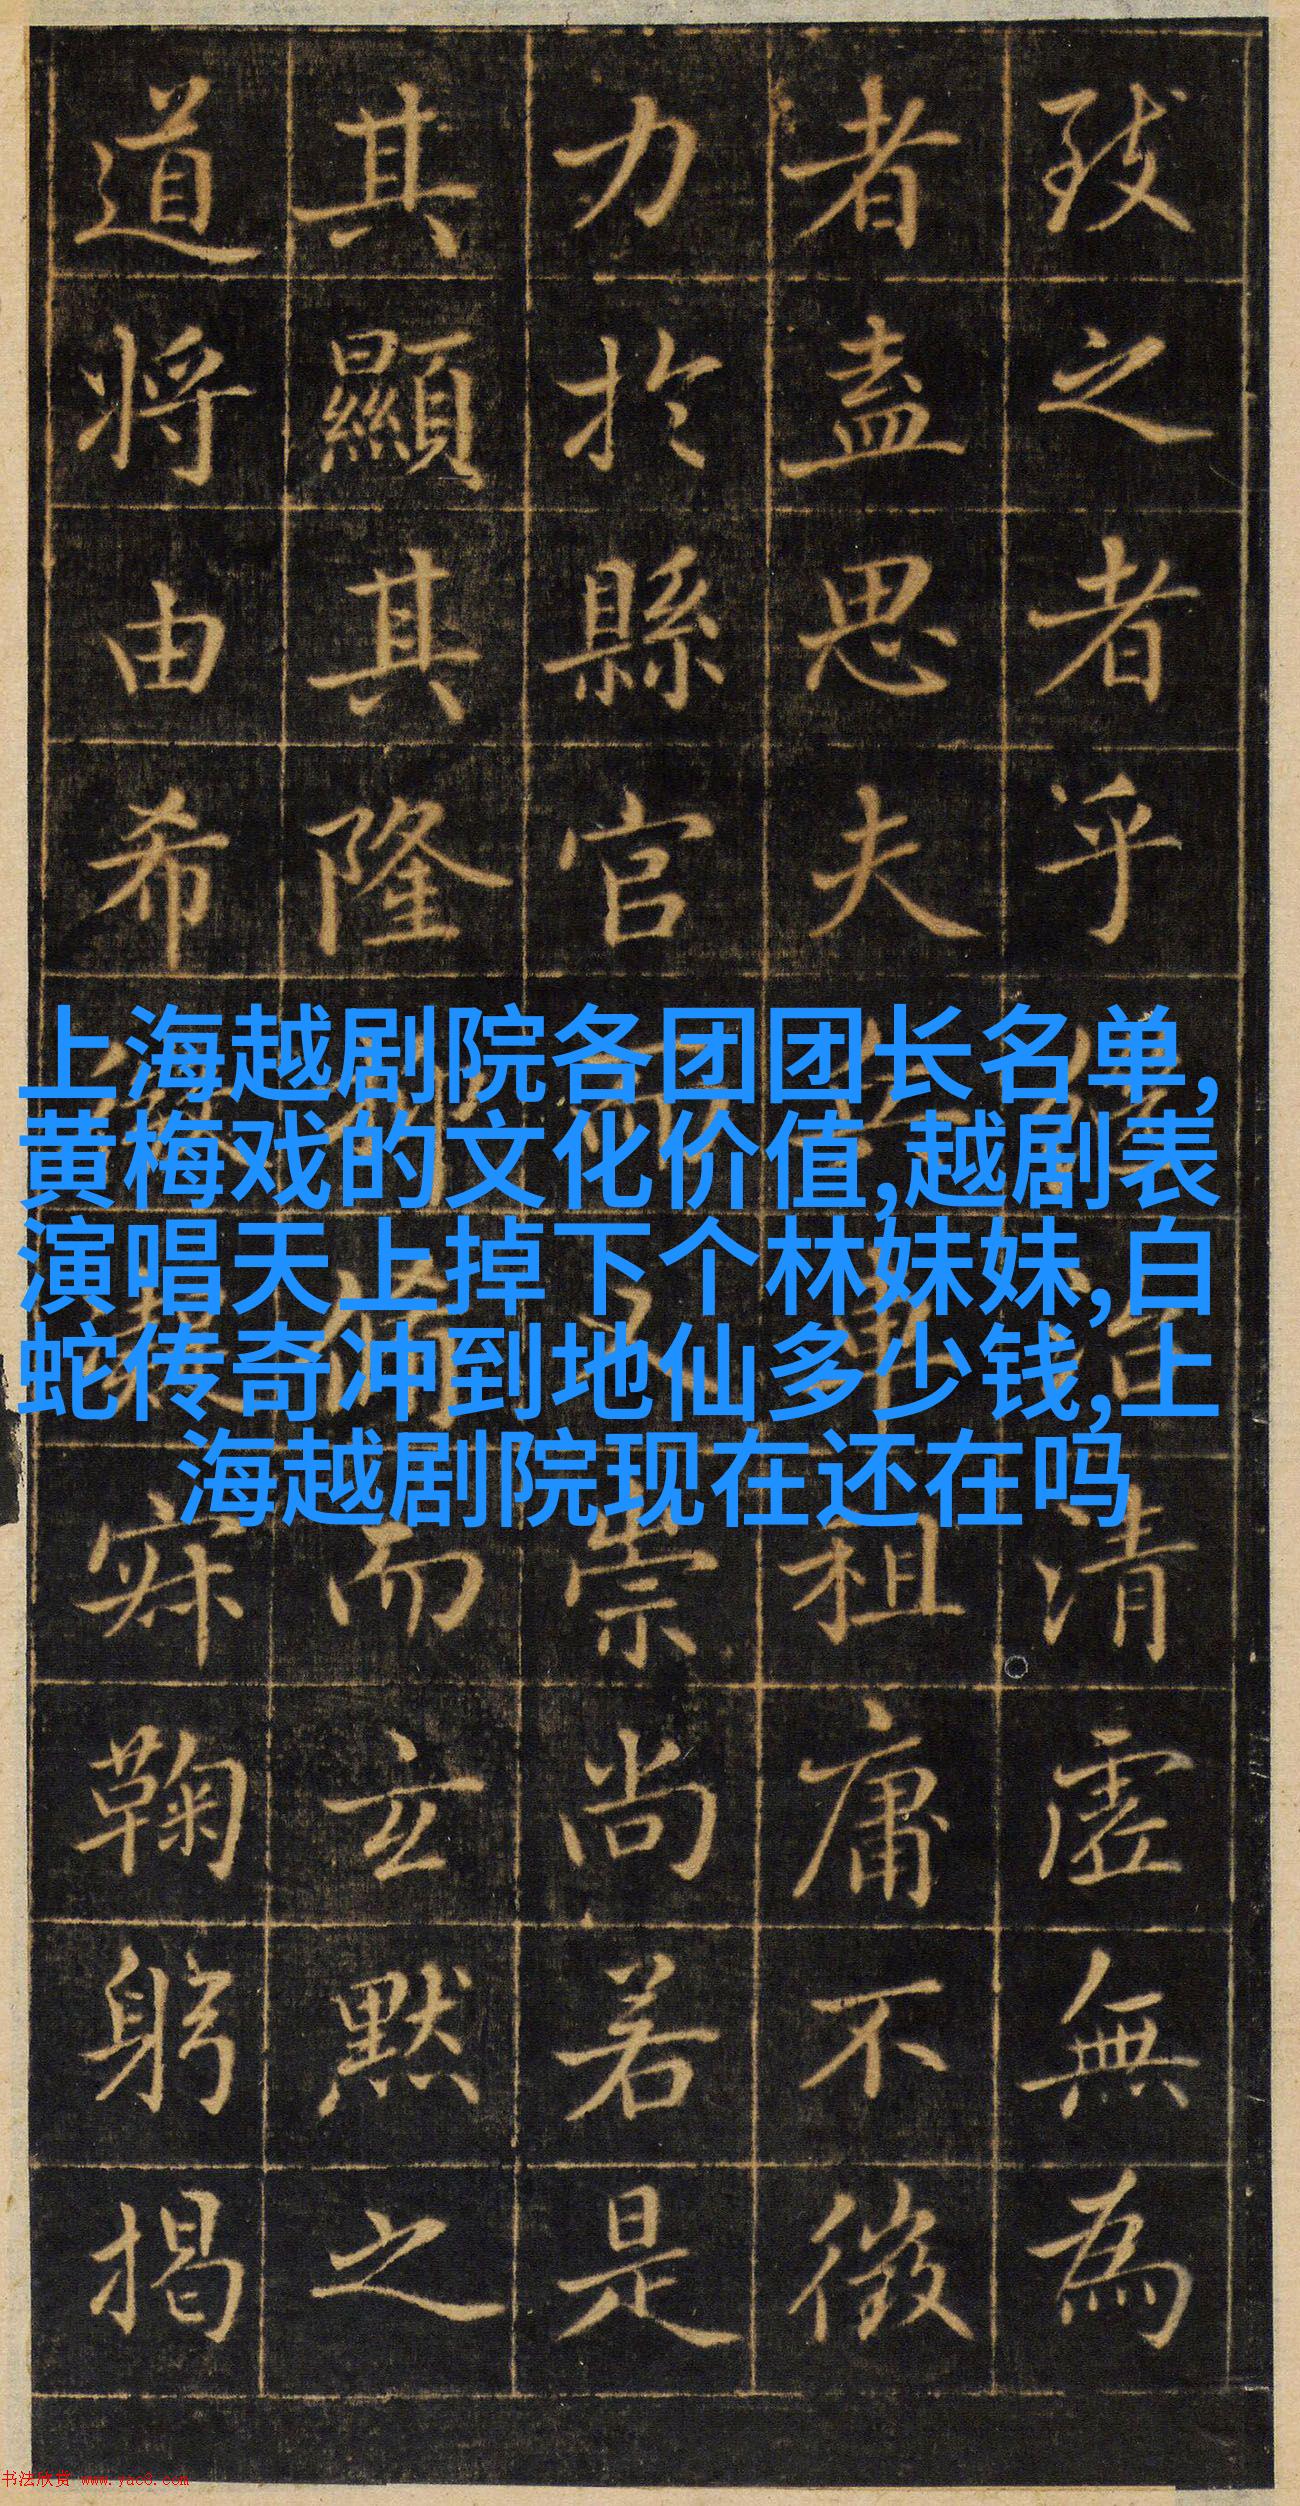 致之者乎清虛無為
者盖思夫租庸不徵
力於縣官崇尚若是
其顯其隆而玄默之
道將由希寂鞠躬揭
上海越剧院各团团长名单,
黄梅戏的文化价值,越剧表
演唱天上掉下个林妹妹,白
蛇传奇冲到地仙多少钱,上
海越剧院现在还在吗
书法欣赏 www.yac8.com